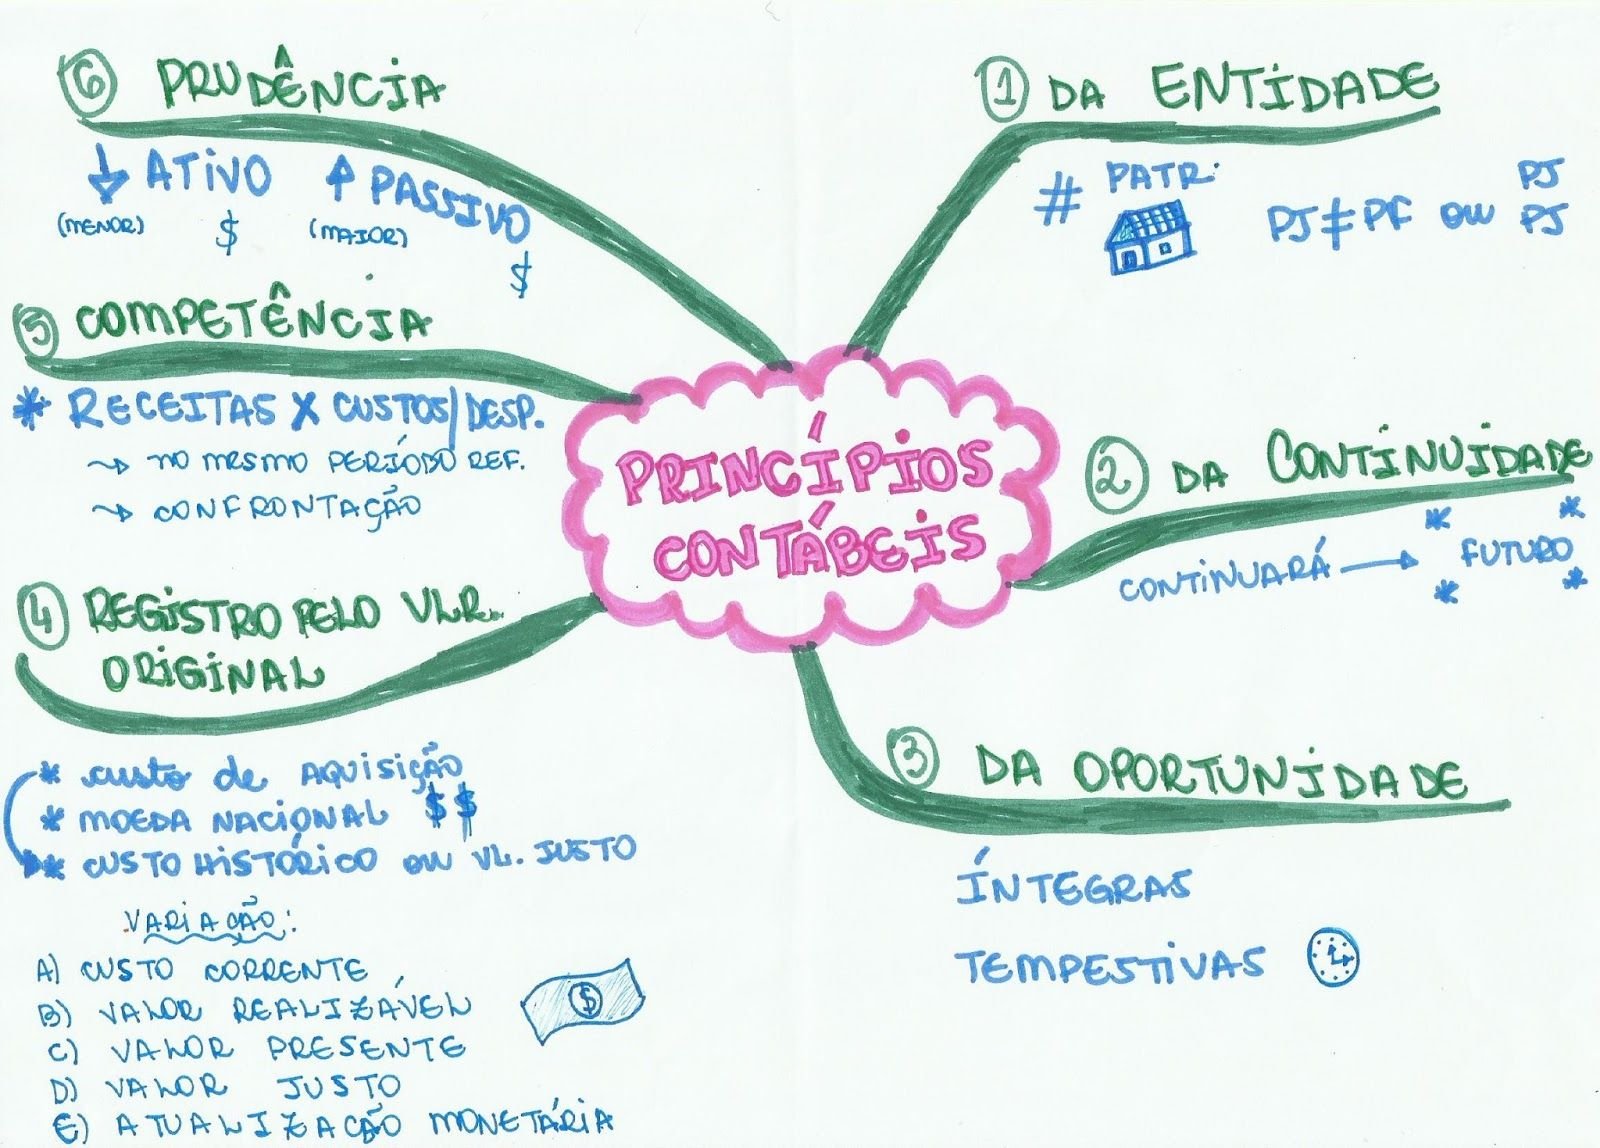 PRINCÍPIOS
CONTÁBEIS
1 DA ENTIDADE
# PATR:
PJ ≠ PF ou PJ
PJ
2 DA CONTINUIDADE
CONTINUARÁ → FUTURO
3 DA OPORTUNIDADE
ÍNTEGRAS
TEMPESTIVAS
4 REGISTRO PELO VLR.
ORIGINAL
* custo de AQUISIÇÃO
* MOEDA NACIONAL $$
* CUSTO HISTÓRICO ou VL. JUSTO
VARIAÇÃO:
A) CUSTO CORRENTE
B) VALOR REALIZÁVEL
C) VALOR PRESENTE
D) VALOR JUSTO
E) ATUALIZAÇÃO MONETÁRIA
$
5 COMPETÊNCIA
* RECEITAS X CUSTOS/DESP.
→ NO MESMO PERÍODO REF.
→ CONFRONTAÇÃO
6 PRUDÊNCIA
↓ ATIVO ↑ PASSIVO
(MENOR) $ (MAIOR) $